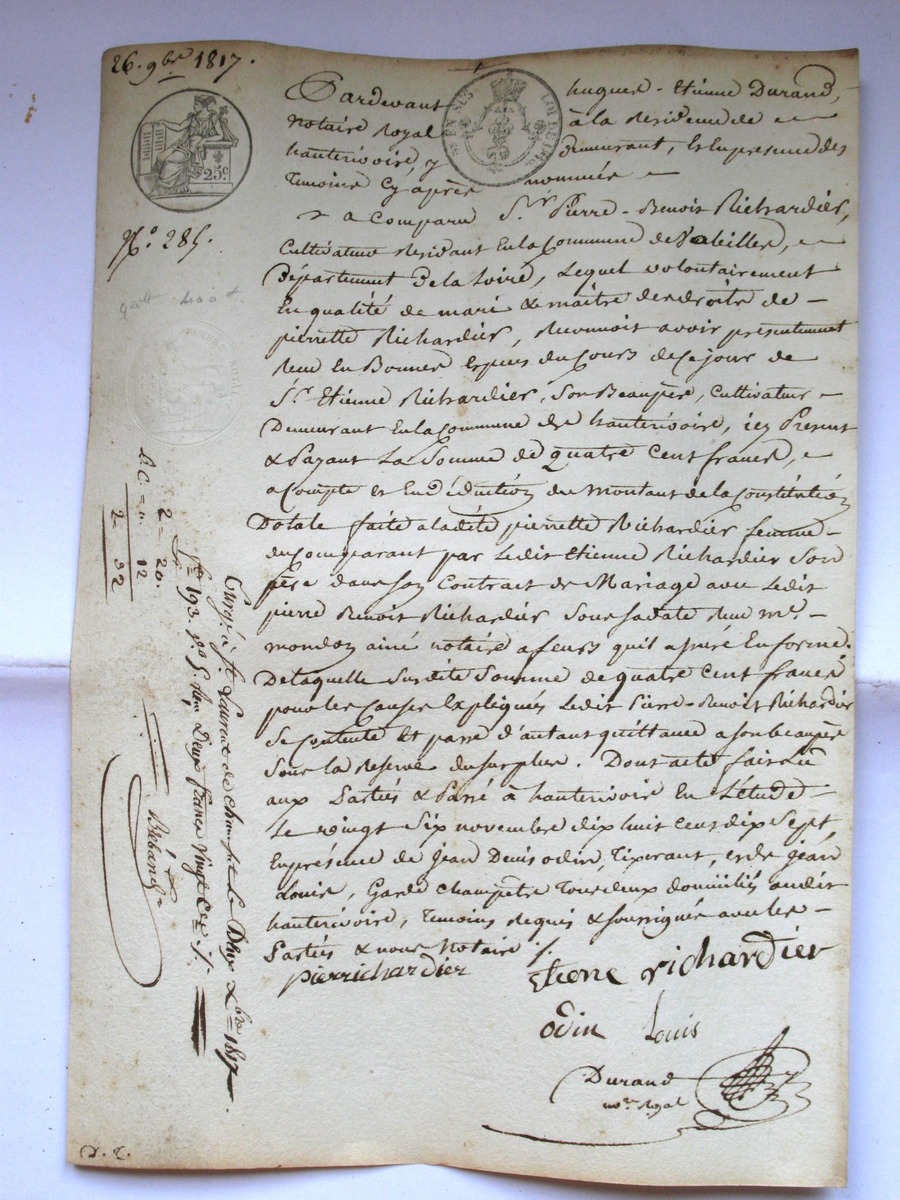 26. 9bre 1817.
Pardevant hugues-Etienne Durand,
notaire royal à la Residence de
hauterivoire, y Demeurant, Et En presence des
Temoins Cy après nommés
a Comparu Sr. Pierre-Benoit Richardier,
Cultivateur Residant En la Commune de Valeilles,
Département De la Loire, Lequel volontairement
En qualité de mari & maître des droits de
pierrette Richardier, Reconnoit avoir présentement
Reçu En Bonnes Especes du Cours de Ce jour de
Sr. Etienne Richardier, Son Beaupère, Cultivateur
Demeurant En la Commune de hauterivoire, icy Present
& Payant La Somme de quatre Cent francs,
a Compte et En Déduction du montant de la Constitution
Dotale faite a ladite pierrette Richardier femme
du Comparant par Ledit Etienne Richardier Son
père dans Son Contrat de Mariage avec Ledit
pierre Benoit Richardier Sous Sa date Reçu me.
mondon ainé notaire a feurs qu'il a assuré En forme.
De laquelle Susdite Somme de quatre Cent francs
pour les Causes Expliqués Ledit Pierre-Benoit Richardier
Se Contente Et passe d'autant quittance a son beaupère
Sous la Reserve du Surplus. Dont acte fait Lu
aux Parties & Passé à hauterivoir En L'étude
Le vingt Six novembre dix huit Cent dix Sept,
En présence de Jean Denis odin, Tixerant, et de Jean
Louis, Garde Champêtre Tous deux domiciliés audit
hauterivoire, Temoins Requis & Soussignés avec les
Parties & nous Notaire
pierrichardier
Etiene richardier
odin Louis
Durand
nore Royal
25c.
No. 285.
quitt 400 f
2 = 20.
D.C. = " 12
2 32
Enregé. à St. Laurent de Chamousset Le Deux Xbre 1817
Reçu Deux francs Vingt Cmes
D. T.